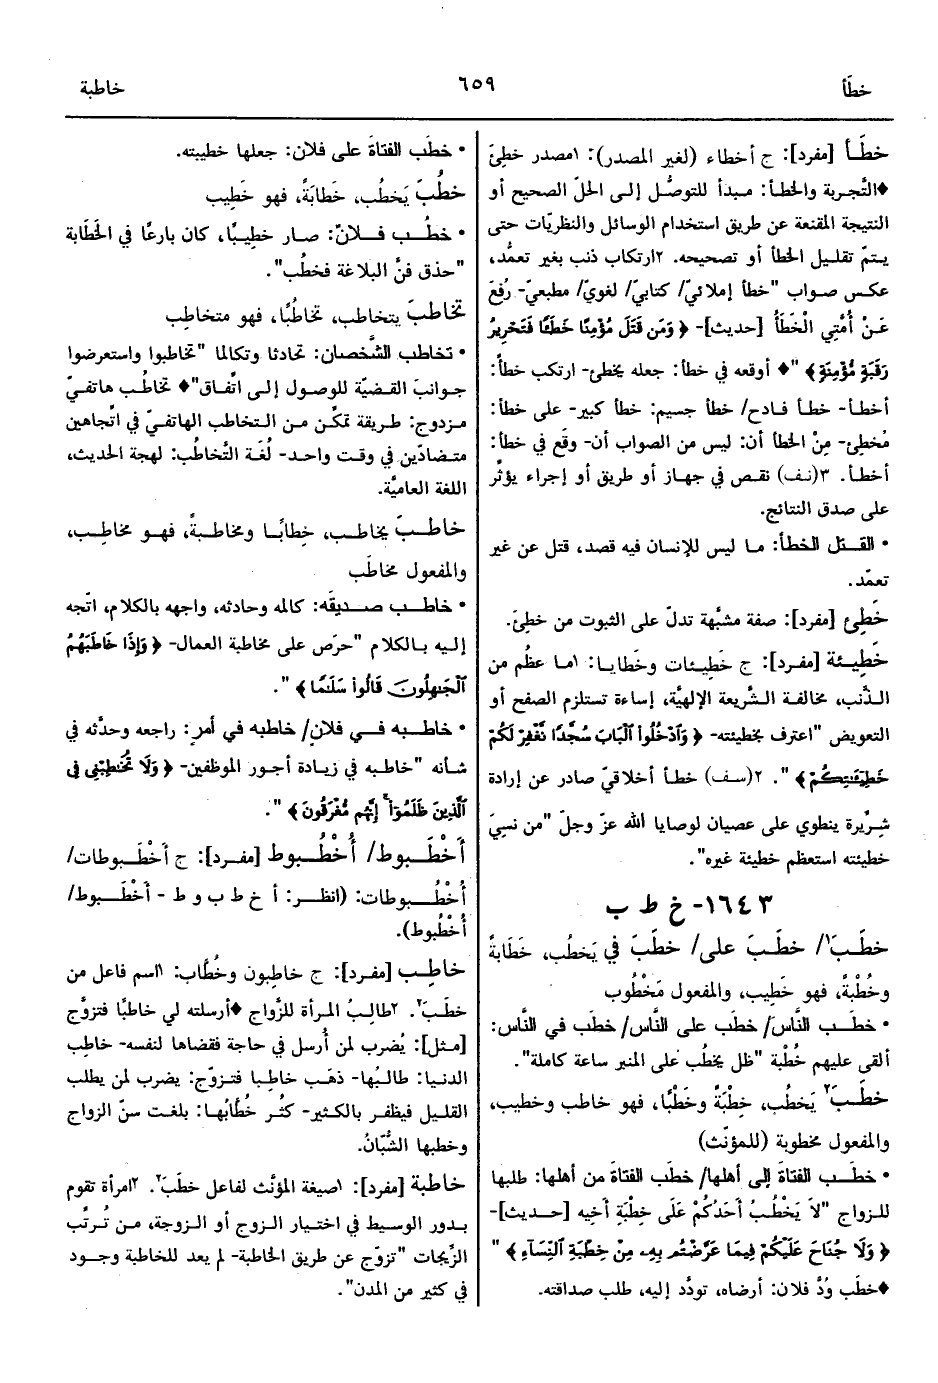 خطَأ
٦٥٩
خاطبة
خطَـأ [مفرد]: ج أخطاء (لغير المصدر): ١مصدر خطِئَ
♦التَّجربة والخطأ: مبدأ للتوصُّل إلى الحلّ الصحيح أو
النتيجة المقنعة عن طريق استخدام الوسائل والنظريّات حتى
يـتمّ تقليل الخطأ أو تصحيحه. ٢ارتكاب ذنب بغير تعمُّد،
عكس صواب "خطأ إملائيّ/ كتابيّ/ لغويّ/ مطبعيّ- رُفِعَ
عَـنْ أُمَّتِي الْخَطَأُ [حديث]- ﴿ وَمَن قَتَلَ مُؤْمِنًا خَطَـًٔا فَتَحْرِيرُ
رَقَبَةٍ مُّؤْمِنَةٍ ﴾ "♦ أوقعه في خطأ: جعله يخطئ- ارتكب خطأ:
أخطـأ- خطـأ فـادح/ خطأ جسيم: خطأ كبير- على خطأ:
مُخطئ- مِنْ الخطأ أن: ليس من الصواب أن- وقَع في خطأ:
أخطـأ. ٣(نـف) نقـص في جهـاز أو طريق أو إجراء يؤثِّر
على صدق النتائج.
• القـتـل الخطأ: مـا ليس للإنسان فيه قصد، قتل عن غير
تعمّد.
خَطِئ [مفرد]: صفة مشبَّهة تدلّ على الثبوت من خطِئَ.
خَطِيئة [مفـرد]: ج خَطِيئات وخَطايـا: ١مـا عظُم من
الذَّنب، مخالفة الشَّريعة الإلهيَّة، إساءة تستلزم الصفح أو
التعويض "اعترف بخطيئته- ﴿ وَٱدْخُلُواْ ٱلْبَابَ سُجَّدًا نَّغْفِرْ لَكُمْ
خَطِيٓـَٰٔتِكُمْ ﴾ ". ٢(سـف) خطـأ أخلاقيّ صادر عن إرادة
شـرِّيرة ينطوي على عصيان لوصايا الله عزّ وجلّ "من نسيَ
خطيئته استعظم خطيئة غيره".
١٦٤٣- خ ط ب
خطَـبَ١/ خطَـبَ على/ خطَبَ في يَخطُب، خَطَابةً
وخُطْبةً، فهو خَطِيب، والمفعول مَخْطُوب
• خطَـب النَّاسَ/ خطَب على النَّاس/ خطَب في النَّاس:
ألقى عليهم خُطْبة "ظل يخطُب عَلى المنبر ساعة كاملة".
خطَـبَ٢ يَخطُب، خِطْبَةً وخَطْبًا، فهو خاطب وخطيب،
والمفعول مخطوبة (للمؤنّث)
• خطَـب الفتاةَ إلى أهلها/ خطَب الفتاةَ من أهلها: طلبها
للـزواج "لاَ يَخْطُبُ أَحَدُكُمْ عَلَى خِطْبَةِ أخيه [حـديث]-
﴿ وَلَا جُنَاحَ عَلَيْكُمْ فِيمَا عَرَّضْتُم بِهِۦ مِنْ خِطْبَةِ ٱلنِّسَآءِ ﴾ "
♦خطَب وُدَّ فلان: أرضاه، تودَّد إليه، طلب صداقته.
• خطَب الفتاةَ على فلان: جعلها خطيبته.
خطُبَ يَخطُب، خَطَابةً، فهو خَطِيب
• خطُـب فـلانٌ: صـار خطيبًـا، كان بارعًا في الخَطَابة
"حذق فنَّ البلاغة فخطُب".
تخاطَبَ يتخاطَب، تخاطُبًا، فهو متخاطِب
• تخاطـب الشَّخصان: تحادثا وتكالما "تخاطبوا واستعرضوا
جوانبَ القـضيّة للوصـول إلـى اتِّفاق"♦ تخاطُـب هاتفـيّ
مـزدوج: طـريقة تمكِّـن مـن الـتخاطب الهاتفـيّ في اتجاهين
متـضادّين في وقت واحـد- لُغَـة التَّخاطُب: لهجة الحديث،
اللغة العاميَّة.
خاطـبَ يخاطـب، خِطابًـا ومخاطـبةً، فهـو مخاطِـب،
والمفعول مخاطَب
• خاطـب صـديقَه: كالمه وحادثه، واجهه بالكلام، اتّجه
إليه بـالكلام "حـرَص على مخاطبة العمال- ﴿ وَإِذَا خَاطَبَهُمُ
ٱلْجَٰهِلُونَ قَالُواْ سَلَٰمًا ﴾ ".
• خاطـبه فـي فـلان/ خاطبه في أمرٍ: راجعه وحدَّثه في
شـأنه "خاطبه في زيـادة أجـور الموظّفين- ﴿ وَلَا تُخَٰطِبْنِى فِى
ٱلَّذِينَ ظَلَمُوٓاْ ۚ إِنَّهُم مُّغْرَقُونَ ﴾ ".
أَخْطَـبوط/ أُخْطُـبوط [مفـرد]: ج أَخْطَـبوطات/
أُخْطُـبوطات: (انظـر: أ خ ط ب و ط - أَخْطَـبوط/
أُخْطُبوط).
خاطِـب [مفرد]: ج خاطِبون وخُطَّاب: ١اسم فاعل من
خطَـبَ٢. ٢طالِبُ المـرأة للزَّواج ♦أرسلته لي خاطبًا فتزوَّج
[مـثل]: يُضرب لمن أُرسل في حاجة فقضاها لنفسه- خاطِب
الدنيـا: طالـبُها- ذهَب خاطِبـا فتـزوّج: يضرب لمن يطلب
القليل فيظفر بالكثير- كثُـر خُطّابُهـا: بلغت سنّ الزواج
وخطبها الشُّبّانُ.
خاطبة [مفرد]: ١صيغة المؤنَّث لفاعل خطَبَ٢. ٢امرأة تقوم
بـدور الوسيط في اختيار الـزوج أو الـزوجة، مـن تُـرتِّب
الزِّيجات "تزوَّج عن طريق الخاطبة- لم يعد للخاطبة وجـود
في كثير من المدن".